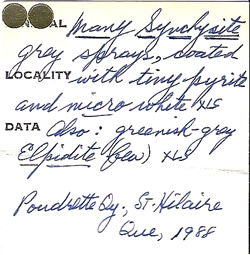 MINERAL Many Synchysite
gray sprays, coated
LOCALITY with tiny pyrite
and micro white xls
DATA Also: greenish-gray
Elpidite (few) xls
Poudrette Qy., St-Hilaire
Que, 1988